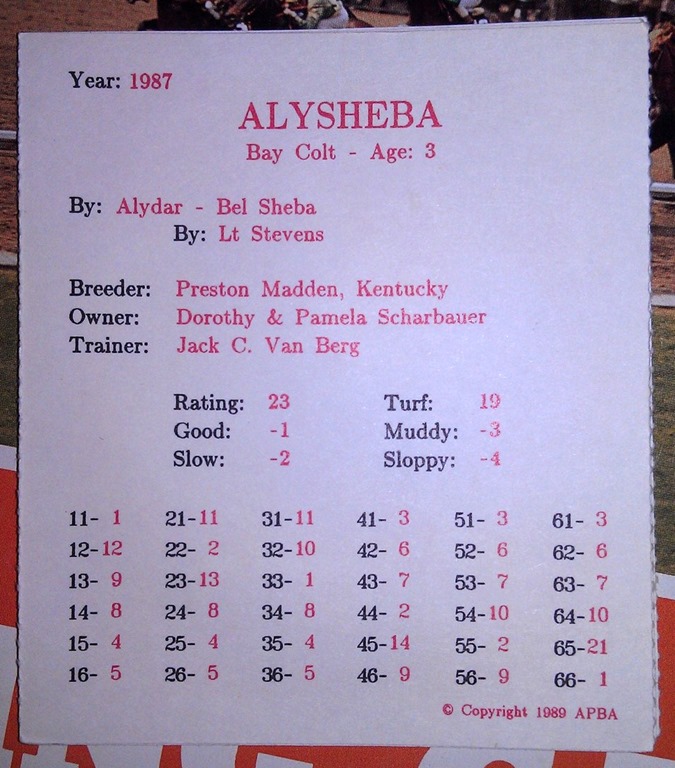 Year: 1987
ALYSHEBA
Bay Colt - Age: 3
By: Alydar - Bel Sheba
By: Lt Stevens
Breeder: Preston Madden, Kentucky
Owner: Dorothy & Pamela Scharbauer
Trainer: Jack C. Van Berg
Rating: 23 Turf: 19
Good: -1 Muddy: -3
Slow: -2 Sloppy: -4
11- 1 21-11 31-11 41- 3 51- 3 61- 3
12-12 22- 2 32-10 42- 6 52- 6 62- 6
13- 9 23-13 33- 1 43- 7 53- 7 63- 7
14- 8 24- 8 34- 8 44- 2 54-10 64-10
15- 4 25- 4 35- 4 45-14 55- 2 65-21
16- 5 26- 5 36- 5 46- 9 56- 9 66- 1
© Copyright 1989 APBA